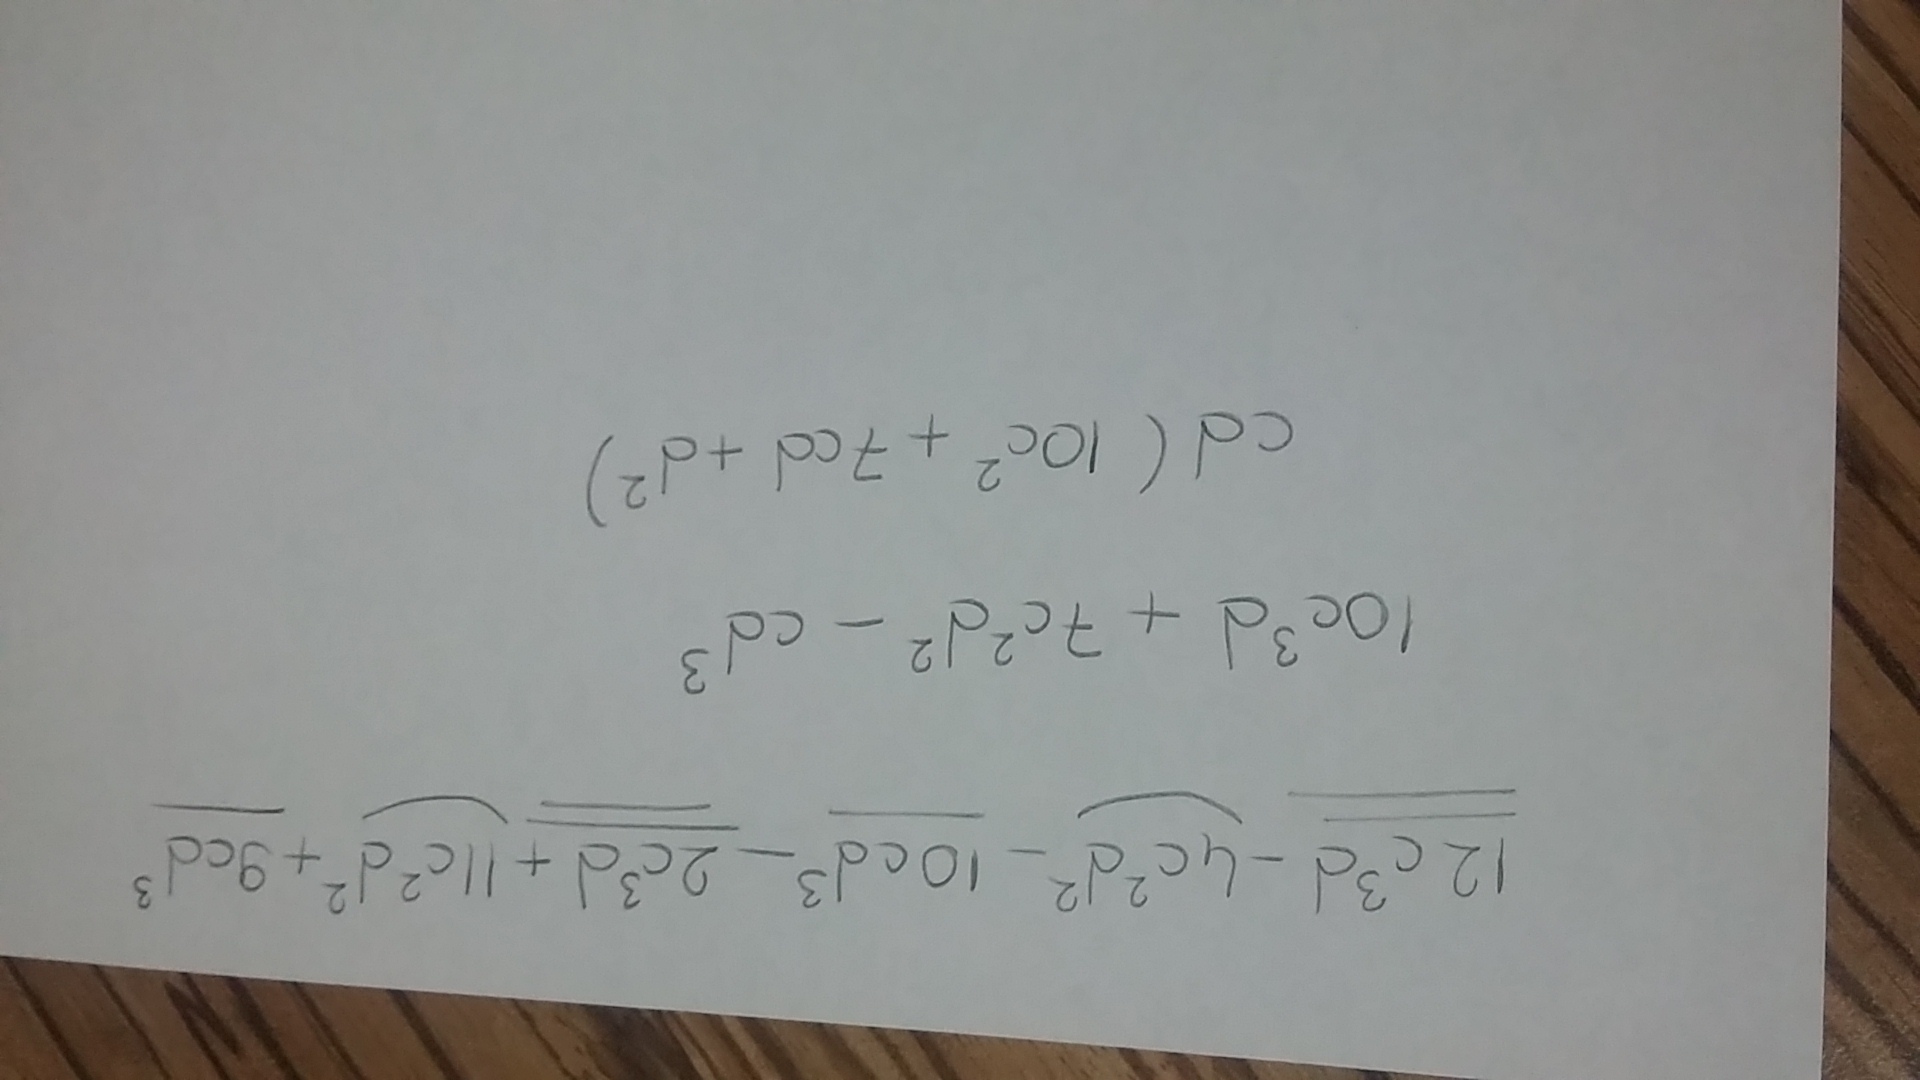 12c³d - 4c²d² - 10cd³ - 2c³d + 11c²d² + 9cd³
10c³d + 7c²d² - cd³
cd (10c² + 7cd + d²)